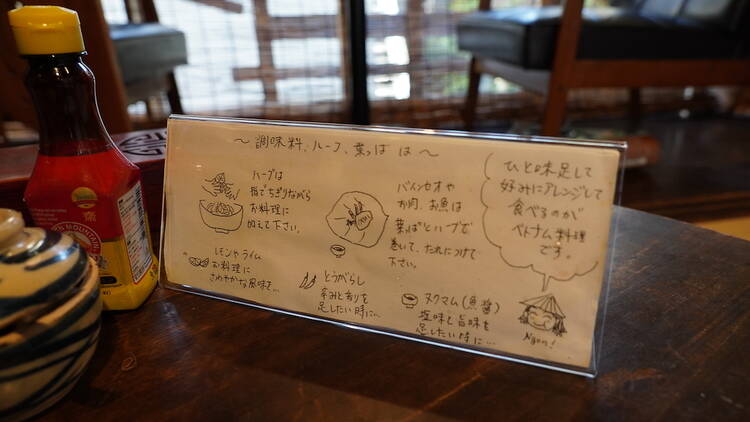 ～調味料、ハーブ、葉っぱ は～
ハーブは
指でちぎりながら
お料理に
加えて下さい。
バインセオや
お肉、お魚は
葉っぱとハーブで
巻いて、たれにつけて
下さい。
ひと味足して
好みにアレンジして
食べるのが
ベトナム料理
です。
レモンやライム
お料理に
さわやかな風味を…
とうがらし
辛みと香りを
足したい時に…
ヌクマム(魚醤)
塩味と旨味を
足したい時に…
Ngon!